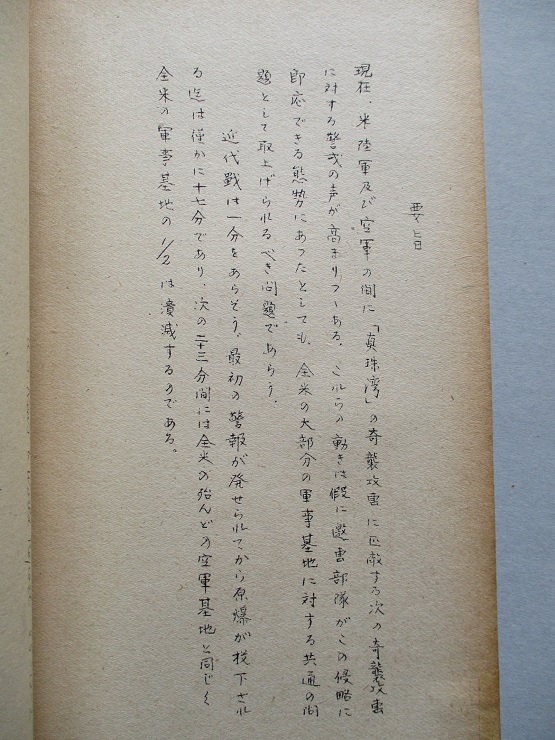 要旨
現在、米陸軍及び空軍の間に「真珠湾」の奇襲攻撃に匹敵する次の奇襲攻撃
に対する警戒の声が高まりつゝある。これらの動きは假に邀撃部隊がこの侵略に
即応できる態勢にあつたとしても、全米の大部分の軍事基地に対する共通の問
題として取上げられるべき問題であらう。
近代戰は一分をあらそう、最初の警報が発せられてから原爆が投下され
る迄は僅かに十七分であり、次の二十三分間には全米の殆んどの空軍基地と同じく
全米の軍事基地の1/2は潰滅するのである。